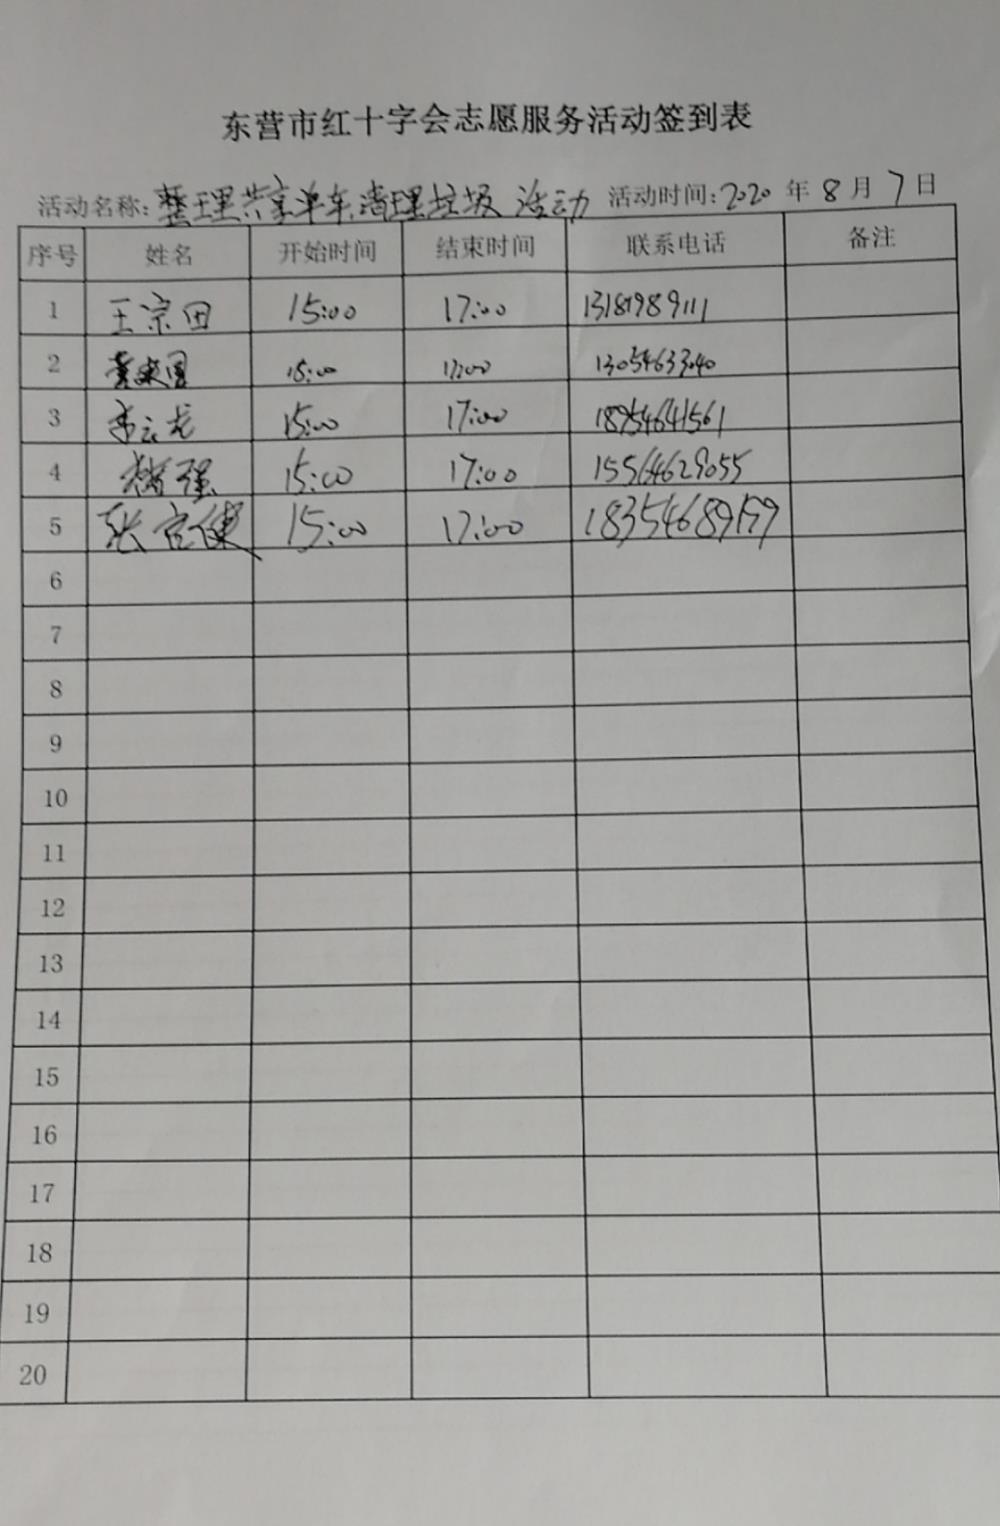 东营市红十字会志愿服务活动签到表
活动名称: 整理共享单车清理垃圾 活动 活动时间: 2020 年 8 月 7 日
序号 姓名 开始时间 结束时间 联系电话 备注
1 王宗田 15:00 17:00 13181989111
2 15:00 17:00 13054633040
3 李云龙 15:00 17:00 18954641561
4 强 15:00 17:00 15564629055
5 张官健 15:00 17:00
6
7
8
9
10
11
12
13
14
15
16
17
18
19
20